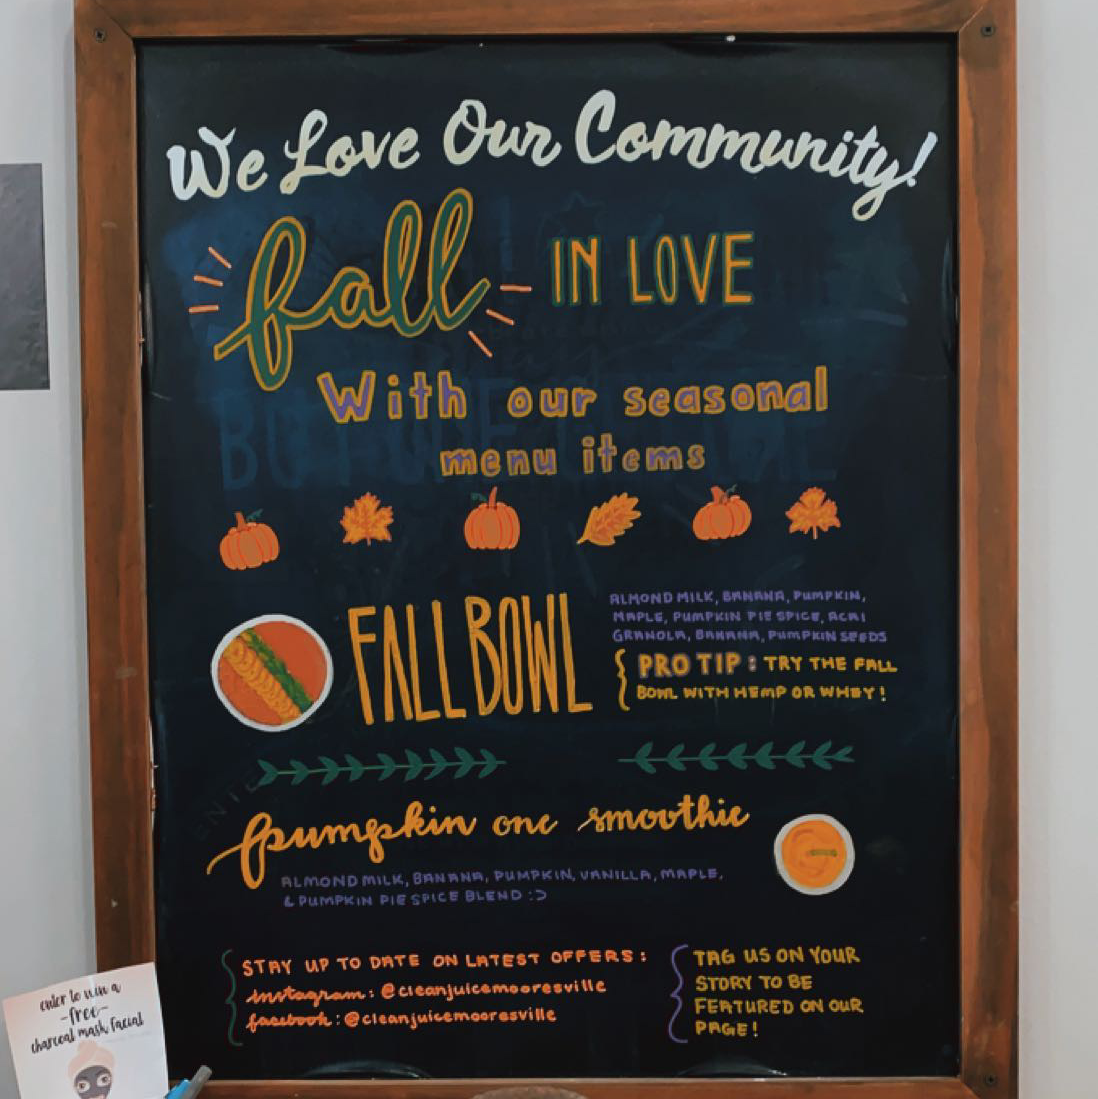 We Love Our Community!
fall IN LOVE
With our seasonal
menu items
FALL BOWL
ALMOND MILK, BANANA, PUMPKIN,
MAPLE, PUMPKIN PIE SPICE, ACAI
GRANOLA, BANANA, PUMPKIN SEEDS
PRO TIP: TRY THE FALL
BOWL WITH HEMP OR WHEY!
pumpkin one smoothie
ALMOND MILK, BANANA, PUMPKIN, VANILLA, MAPLE,
& PUMPKIN PIE SPICE BLEND :)
STAY UP TO DATE ON LATEST OFFERS:
instagram: @cleanjuicemooresville
facebook: @cleanjuicemooresville
TAG US ON YOUR
STORY TO BE
FEATURED ON OUR
PAGE!
enter to win a
-free-
charcoal mask facial